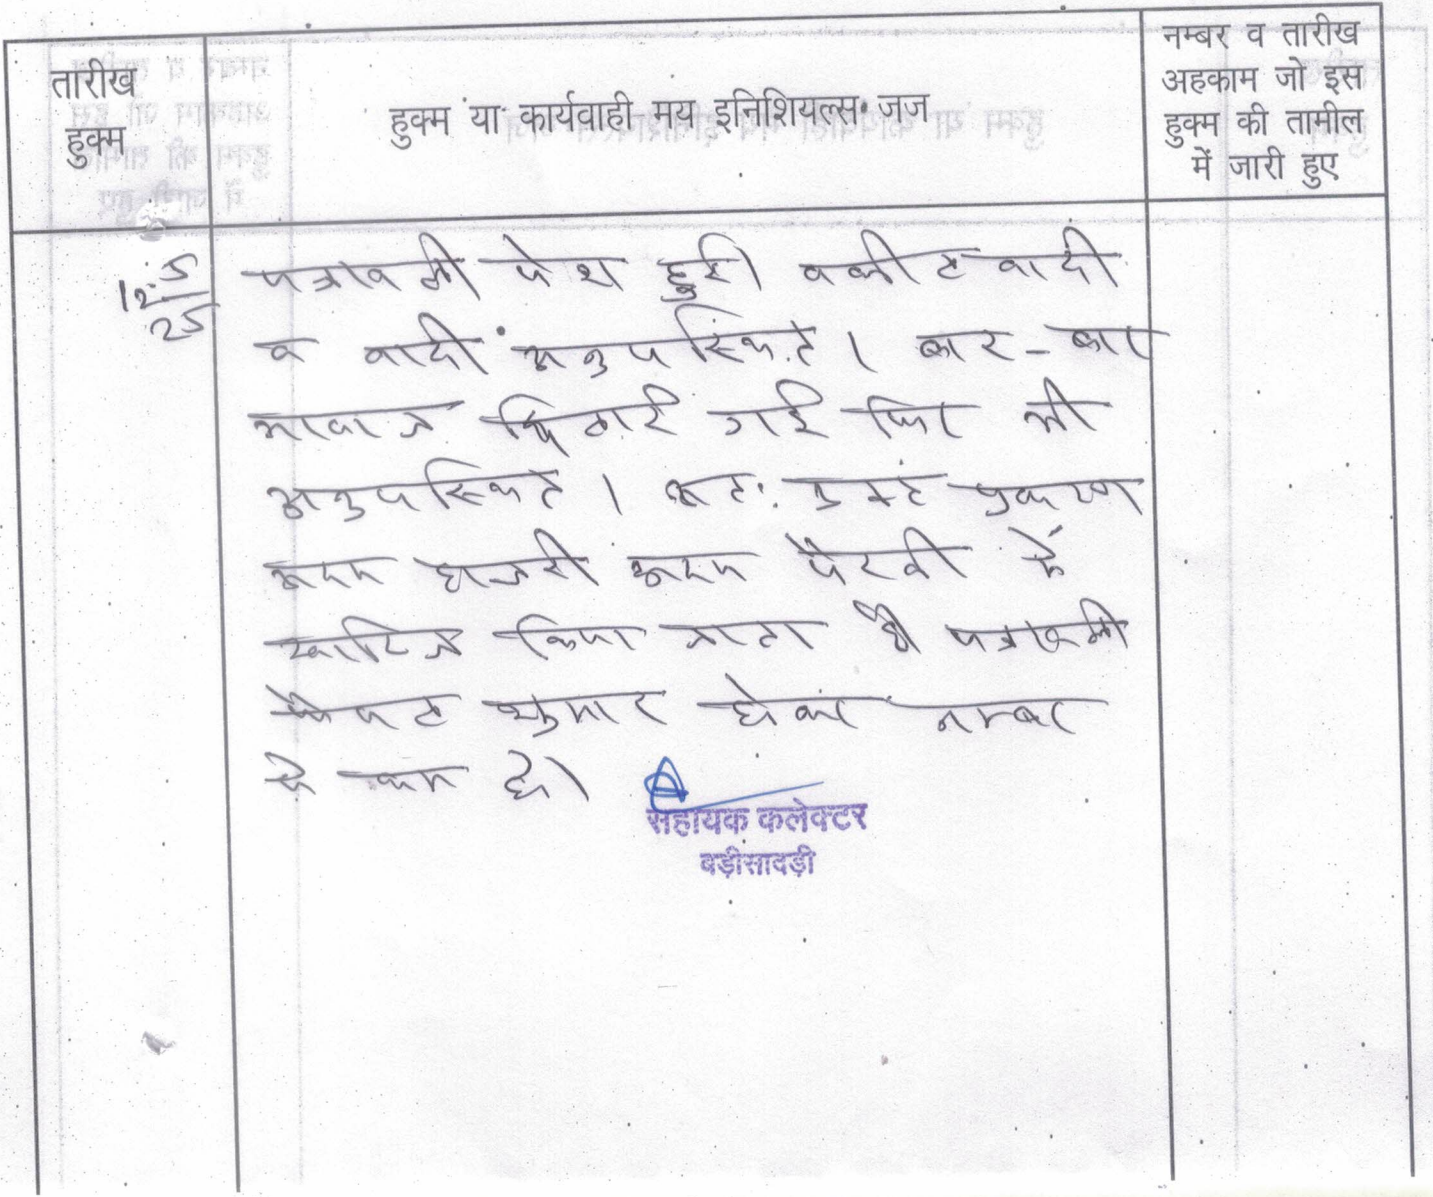 तारीख
हुक्म
हुक्म या कार्यवाही मय इनिशियल्स जज
नम्बर व तारीख
अहकाम जो इस
हुक्म की तामील
में जारी हुए
12-5
25
पत्रावली पेश हुई। वकील वादी
व वादी अनुपस्थित। बार-बार
आवाज दिलाई गई फिर भी
अनुपस्थित। अतः प्रकरण
अदम हाजरी अदम पैरवी में
खारिज किया जाता है पत्रावली
फैसल शुमार होकर नम्बर
से कम हो।
सहायक कलेक्टर
बड़ीसादड़ी